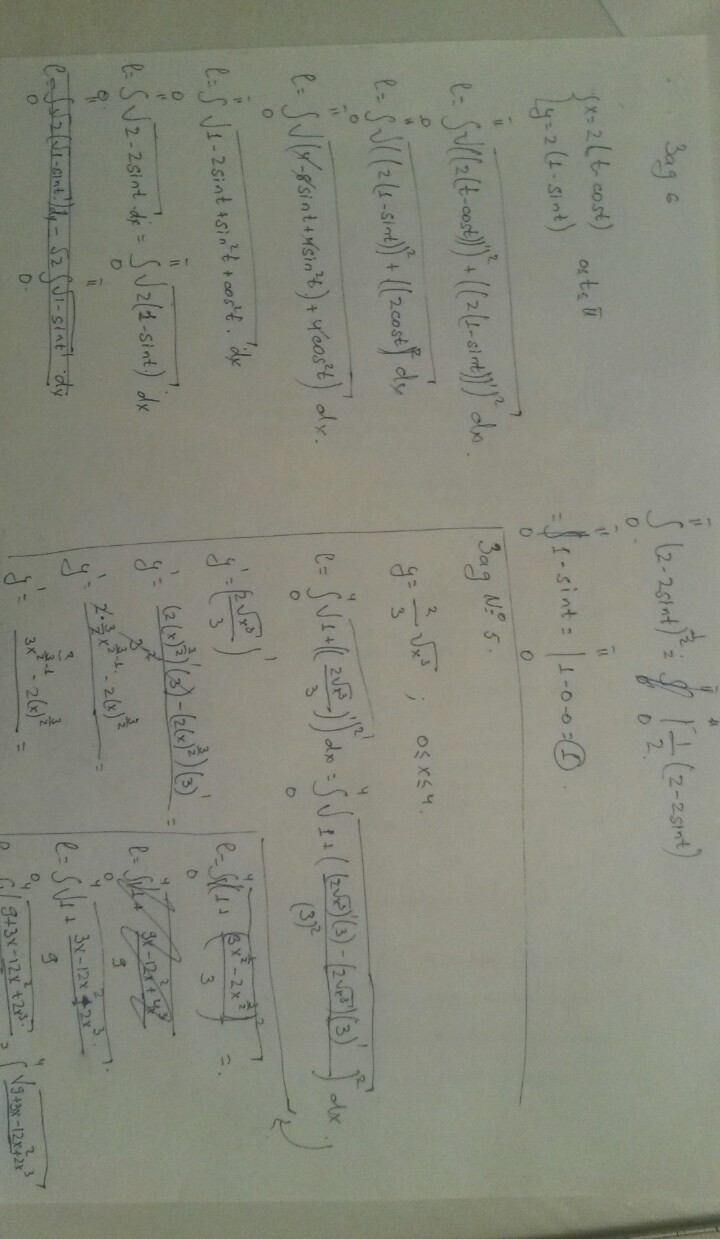 Зад 6
{x=2(t-cost) 0≤t≤π
{y=2(1-sint)
l=∫₀^π √((2(t-cost))')²+((2(1-sint))')² dx.
l=∫₀^π √((2(1-sint))²+((2cost)² dx
l=∫₀^π √(4-8sint+4sin²t)+4cos²t) dx.
l=∫₀^π √1-2sint+sin²t+cos²t. dx
l=∫₀^π √2-2sint .dx = ∫₀^π √2(1-sint.) dx
∫₀^π (2-2sint)^½ =
(½(2-2sint)
= 1-sint = |₀^π 1-0-0=1.
Зад № 5.
y=2/3 √x³ ; 0≤x≤4.
l=∫₀⁴ √1+((2√x³/3)')² dx = ∫₀⁴ √1+((2√x³)'(3)-(2√x³)(3)'/(3)²)² dx.
y'=(2√x³/3)'
y'=(2(x)^3/2)'(3)-(2(x)^3/2)(3)' =
y'= 2·3/2x^3/2-1-2(x)^3/2 =
y'= 3x^3/2-1-2(x)^3/2 =
l=∫₀⁴ √(1+(3x^½-2x^3/2/3)² =.
l=∫₀⁴ √1+ 9x-12x²+4x³/9
l=∫₀⁴ √1+ 3x-12x²+2x³/9.
∫₀⁴ √9+3x-12x²+2x³. = ∫⁴ √9+3x-12x²+2x³